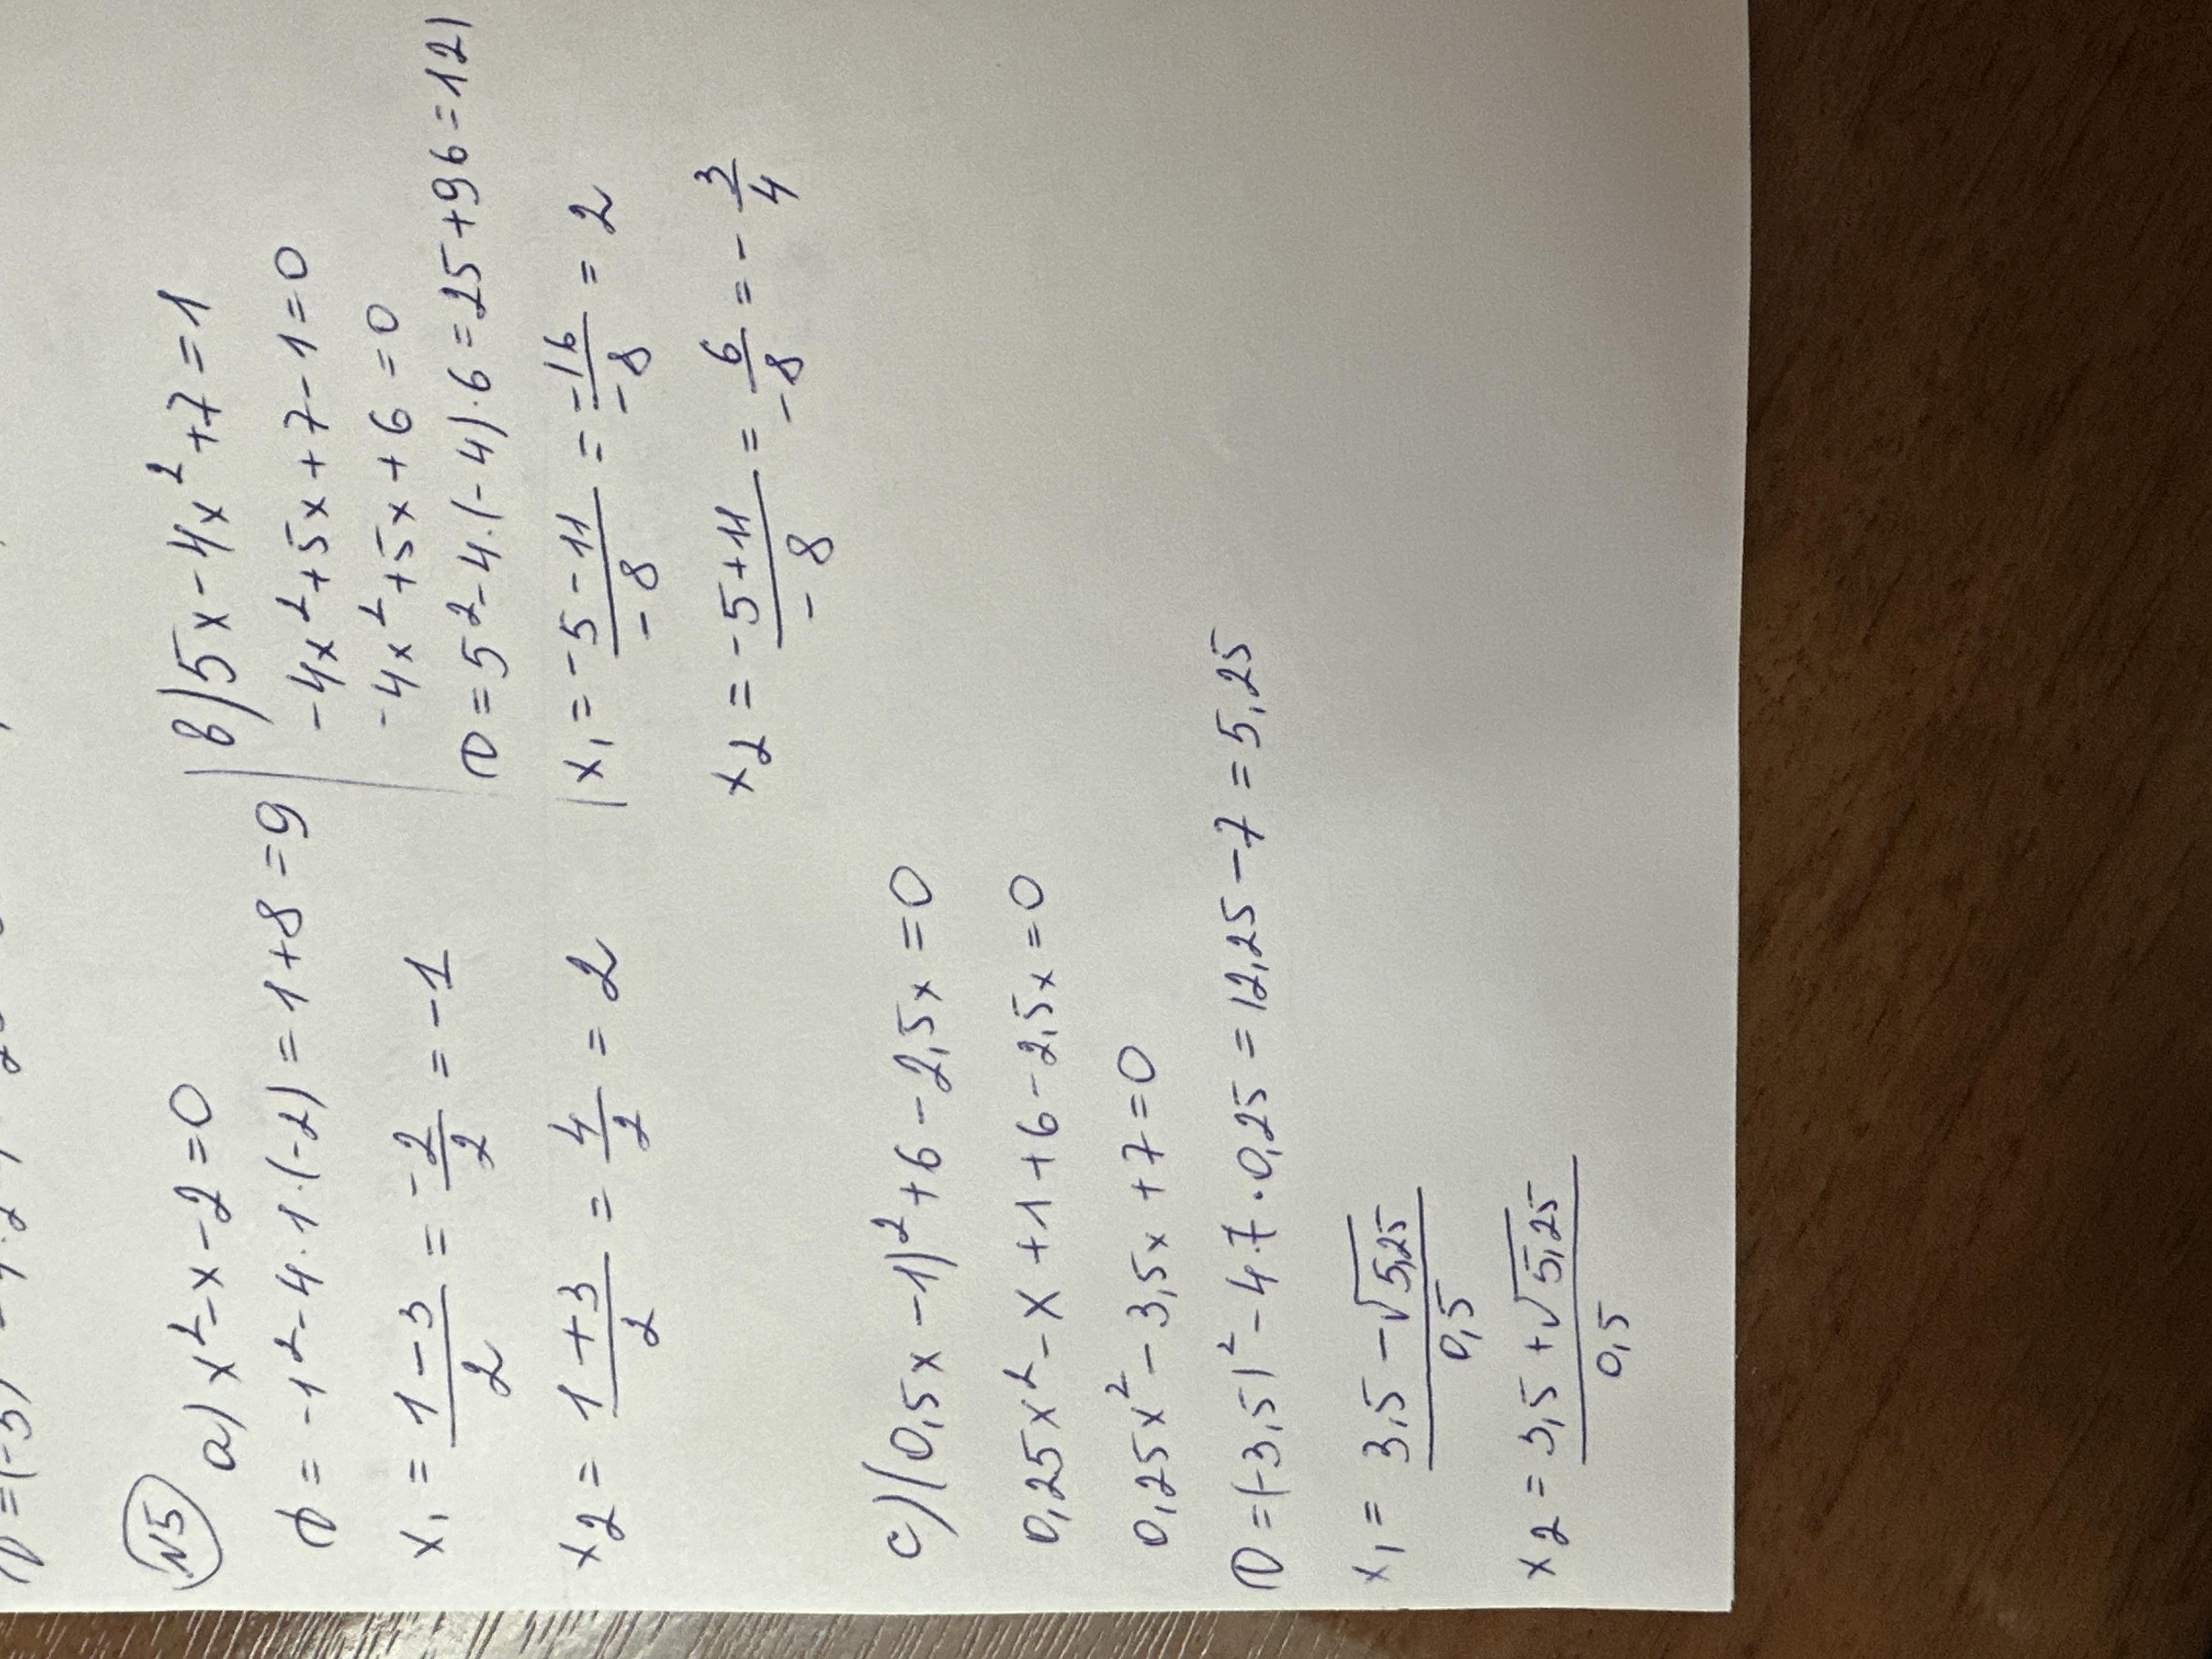 N5 a) x² - x - 2 = 0
D = -1² - 4·1·(-2) = 1 + 8 = 9
x₁ = (1 - 3)/2 = -2/2 = -1
x₂ = (1 + 3)/2 = 4/2 = 2
в) 5x - 4x² + 7 = 1
-4x² + 5x + 7 - 1 = 0
-4x² + 5x + 6 = 0
D = 5² - 4·(-4)·6 = 25 + 96 = 121
x₁ = (-5 - 11)/-8 = -16/-8 = 2
x₂ = (-5 + 11)/-8 = 6/-8 = -3/4
c) (0,5x - 1)² + 6 - 2,5x = 0
0,25x² - x + 1 + 6 - 2,5x = 0
0,25x² - 3,5x + 7 = 0
D = (-3,5)² - 4·7·0,25 = 12,25 - 7 = 5,25
x₁ = (3,5 - √5,25)/0,5
x₂ = (3,5 + √5,25)/0,5